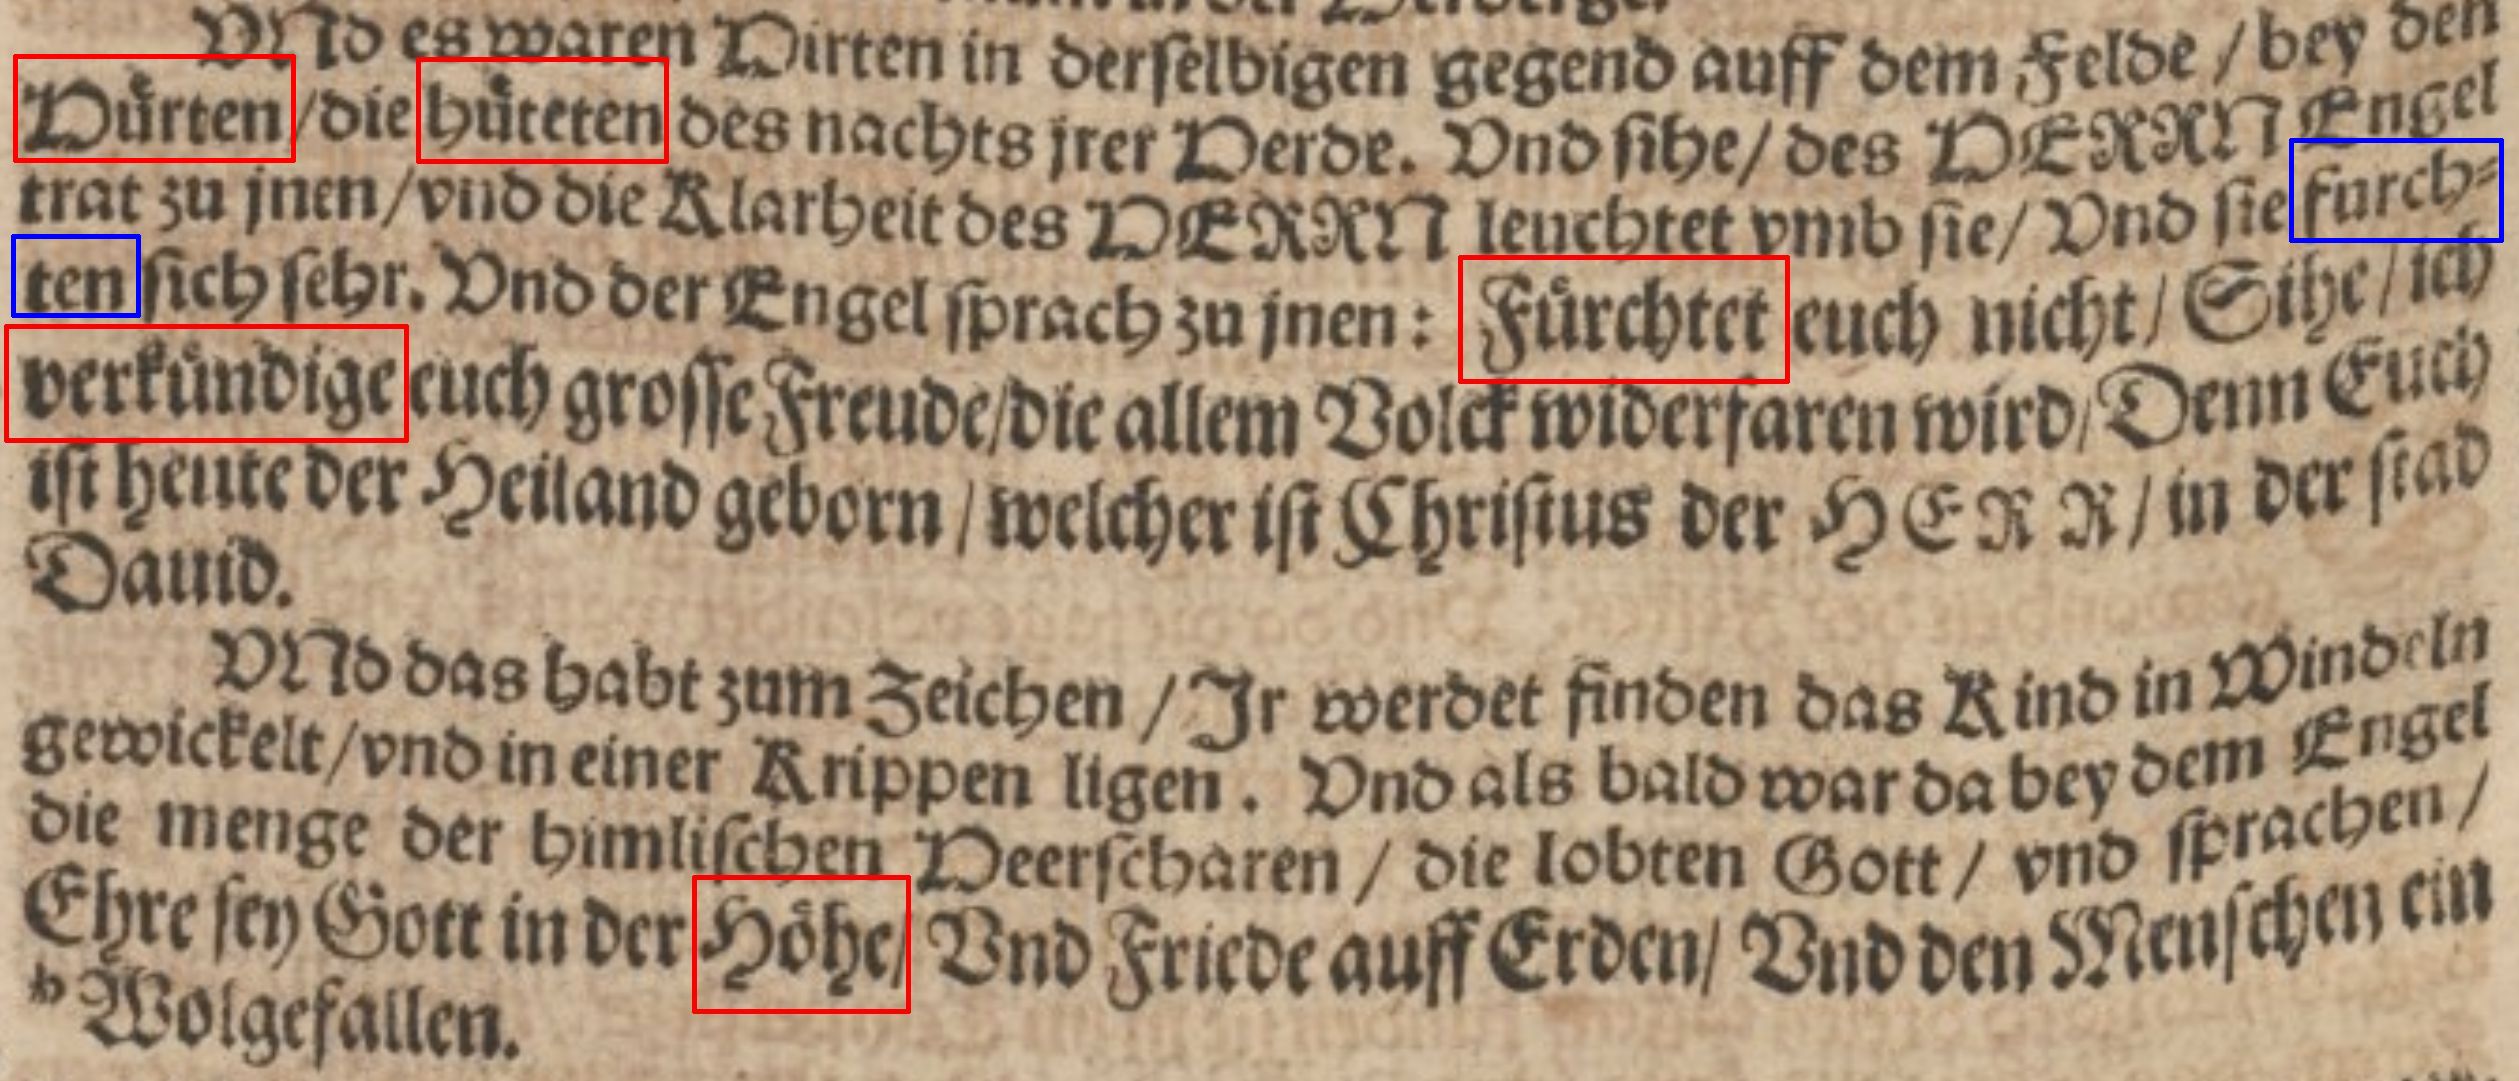 Mum in der Herberge.
VNd es waren Hirten in derſelbigen gegend auff dem Felde / bey den
Huͤrten / die huͤteten des nachts jrer Herde. Vnd ſihe / des HERRN Engel
trat zu jnen / vnd die Klarheit des HERRN leuchtet vmb ſie / Vnd ſie furch⸗
ten ſich ſehr. Vnd der Engel ſprach zu jnen: Fuͤrchtet euch nicht / Sihe / ich
verkuͤndige euch groſſe Freude / die allem Volck widerfaren wird / Denn Euch
iſt heute der Heiland geborn / welcher iſt Chriſtus der HERR / in der ſtad
Dauid.
VNd das habt zum Zeichen / Jr werdet finden das Kind in Windeln
gewickelt / vnd in einer Krippen ligen. Vnd als bald war da bey dem Engel
die menge der himliſchen Heerſcharen / die lobten Gott / vnd ſprachen /
Ehre ſey Gott in der Hoͤhe / Vnd Friede auff Erden / Vnd den Menſchen ein
b Wolgefallen.